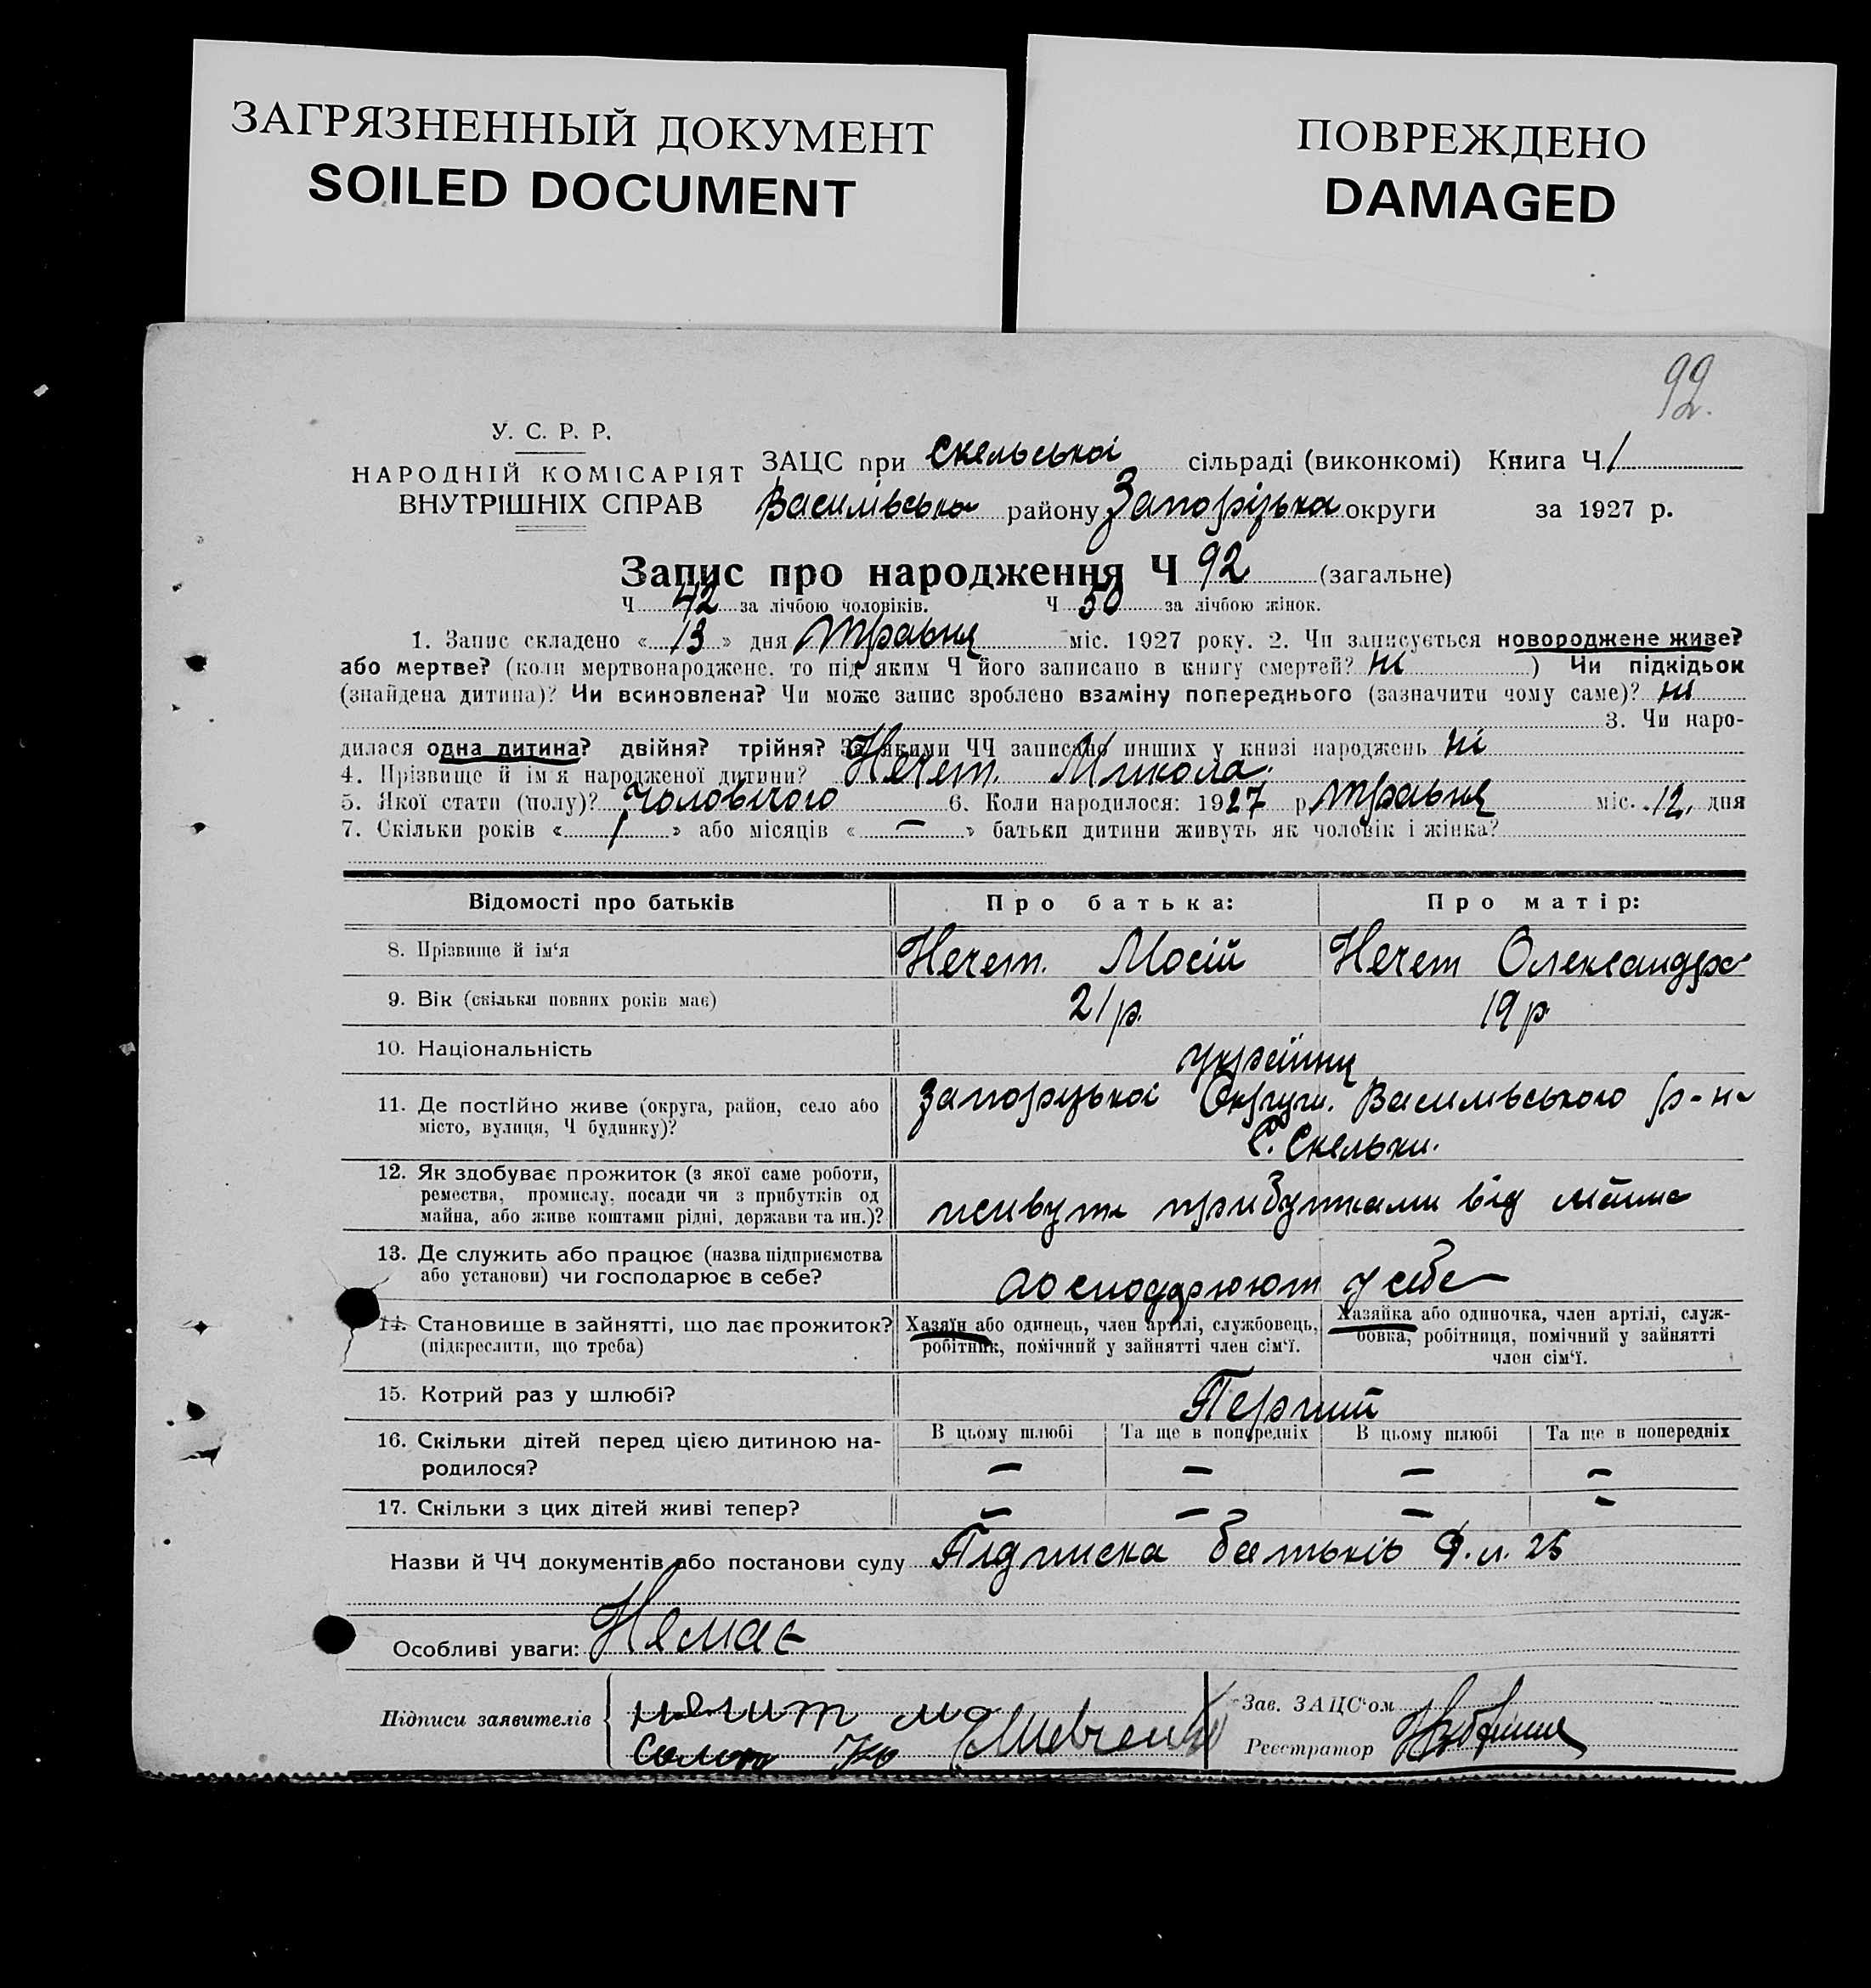 ЗАГРЯЗНЕННЫЙ ДОКУМЕНТ
SOILED DOCUMENT
ПОВРЕЖДЕНО
DAMAGED
92.
У. С. Р. Р.
НАРОДНІЙ КОМІСАРІЯТ
ВНУТРІШНІХ СПРАВ
ЗАЦС при Скельської сільраді (виконкомі) Книга Ч. 1
Василівська району Запорізька округи за 1927 р.
Запис про народження Ч 92 (загальне)
Ч 42 за лічбою чоловіків. Ч 50 за лічбою жінок.
1. Запис складено « 13 » дня Травня міс. 1927 року. 2. Чи записується новороджене живе?
або мертве? (коли мертвонароджене, то під яким Ч його записано в книгу смертей? ні ) Чи підкідьок
(знайдена дитина)? Чи всиновлена? Чи може запис зроблено взаміну попереднього (зазначити чому саме)? ні
3. Чи наро-
дилася одна дитина? двійня? трійня? За якими ЧЧ записано инших у книзі народжень ні
4. Прізвище й ім'я народженої дитини? Нечет. Микола.
5. Якої стати (полу)? Чоловічого 6. Коли народилося: 1927 р. Травня міс. 12. дня
7. Скільки років « 1 » або місяців « — » батьки дитини живуть як чоловік і жінка?
Відомості про батьків Про батька: Про матір:
8. Прізвище й ім'я Нечет. Мосій Нечет Олександра
9. Вік (скільки повних років має) 21 р. 19 р.
10. Національність українці
11. Де постійно живе (округа, район, село або Запорізької Округи. Василівського р-на
місто, вулиця, Ч будинку)? С. Скельки.
12. Як здобуває прожиток (з якої саме роботи,
ремества, промислу, посади чи з прибутків од
майна, або живе коштами рідні, держави та ин.)? живуть прибутками від майна
13. Де служить або працює (назва підприємства
або установи) чи господарює в себе? господарюют у себе
14. Становище в зайнятті, що дає прожиток? Хазяїн або одинець, член артілі, службовець, Хазяйка або одиночка, член артілі, служ-
(підкреслити, що треба) робітник, помічний у зайнятті член сім'ї. бовка, робітниця, помічний у зайнятті
член сім'ї.
15. Котрий раз у шлюбі? Перший
16. Скільки дітей перед цією дитиною на- В цьому шлюбі Та ще в попередніх В цьому шлюбі Та ще в попередніх
родилося? — — — —
17. Скільки з цих дітей живі тепер? — — — —
Назви й ЧЧ документів або постанови суду Підписка батьків Ф. л. 25
Особливі уваги: Немає
Підписи заявителів
Зав. ЗАЦС'ом
Реєстратор